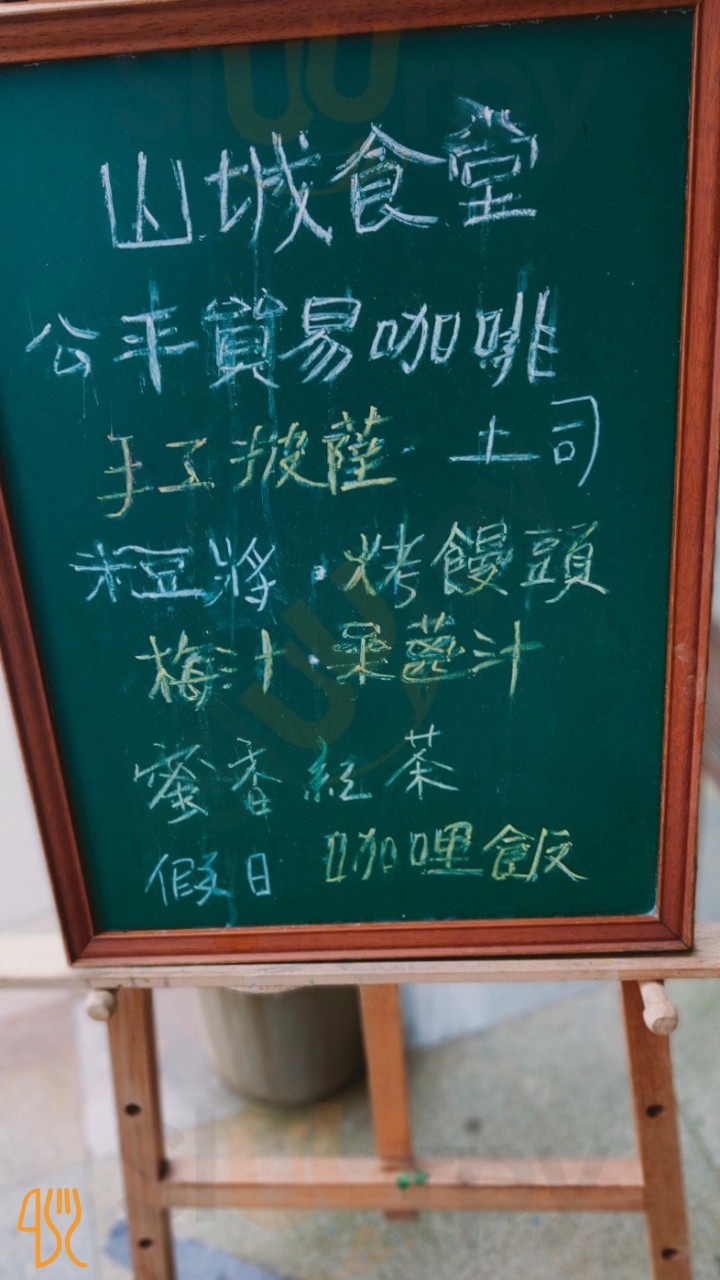 山城食堂
公平貿易咖啡
手工披薩·土司
米豆漿·烤饅頭
梅汁·桑薑汁
蜜香紅茶
假日 咖哩飯
sluurpy